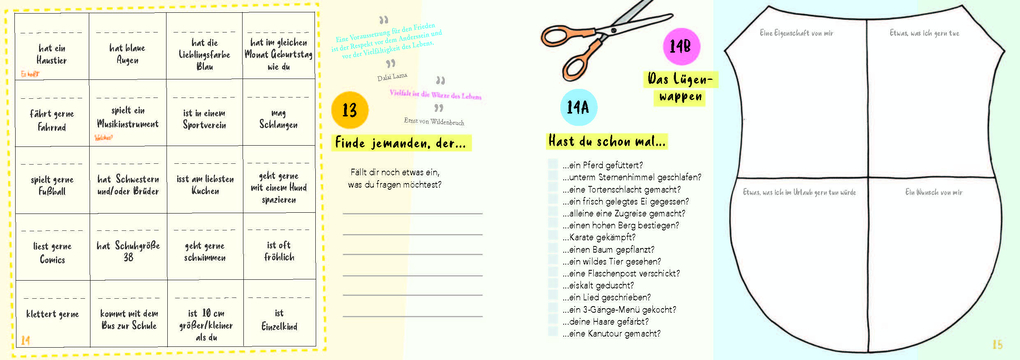 hat ein
Haustier
hat blaue
Augen
hat die
Lieblingsfarbe
Blau
hat im gleichen
Monat Geburtstag
wie du
fährt gerne
Fahrrad
spielt ein
Musikinstrument
Welches?
ist in einem
Sportverein
mag
Schlangen
spielt gerne
Fußball
hat Schwestern
und/oder Brüder
isst am liebsten
Kuchen
geht gerne
mit einem Hund
spazieren
liest gerne
Comics
hat Schuhgröße
38
geht gerne
schwimmen
ist oft
fröhlich
klettert gerne
kommt mit dem
Bus zur Schule
ist 10 cm
größer/kleiner
als du
ist
Einzelkind
14
"
Eine Voraussetzung für den Frieden
ist der Respekt vor dem Anderssein und
vor der Vielfältigkeit des Lebens.
"
Dalai Lama
"
Vielfalt ist die Würze des Lebens
"
Ernst von Wildenbruch
13
Finde jemanden, der...
Fällt dir noch etwas ein,
was du fragen möchtest?
14A
Hast du schon mal...
...ein Pferd gefüttert?
...unterm Sternenhimmel geschlafen?
...eine Tortenschlacht gemacht?
...ein frisch gelegtes Ei gegessen?
...alleine eine Zugreise gemacht?
...einen hohen Berg bestiegen?
...Karate gekämpft?
...einen Baum gepflanzt?
...ein wildes Tier gesehen?
...eine Flaschenpost verschickt?
...eiskalt geduscht?
...ein Lied geschrieben?
...ein 3-Gänge-Menü gekocht?
...deine Haare gefärbt?
...eine Kanutour gemacht?
14B
Das Lügen-
wappen
Eine Eigenschaft von mir
Etwas, was ich gern tue
Etwas, was ich im Urlaub gern tun würde
Ein Wunsch von mir
15